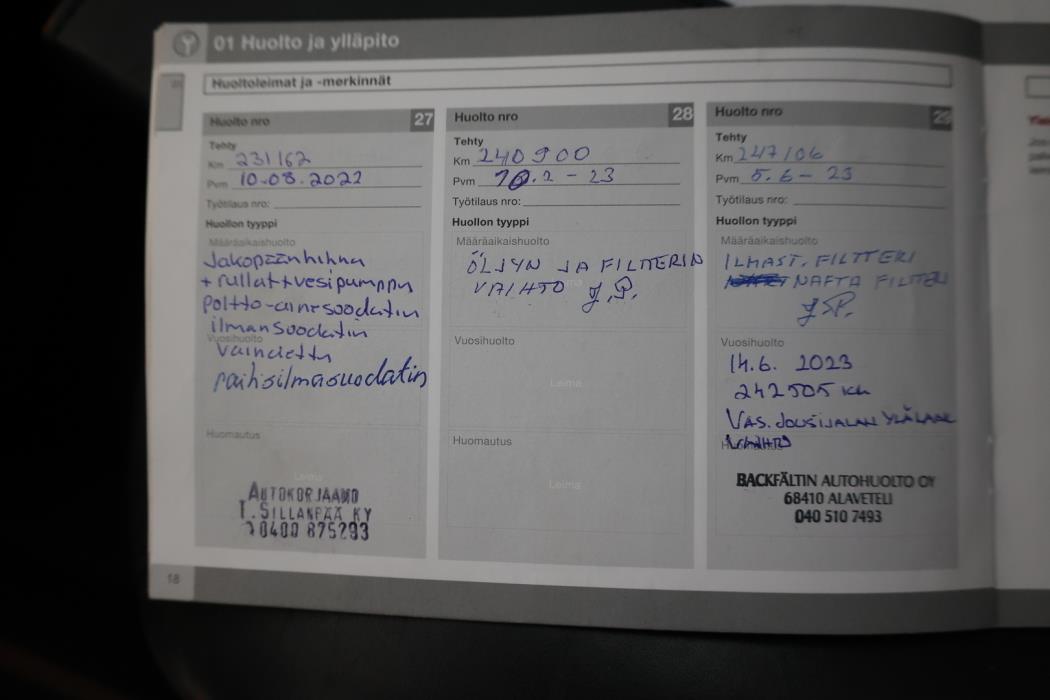 01 Huolto ja ylläpito
Huoltoleimat ja -merkinnät
Huolto nro 27
Tehty
Km 231162
Pvm 10.08.2022
Työtilaus nro:
Huollon tyyppi
Määräaikaishuolto
Jakopäänhihna
+ rullat + vesipumppu
poltto-ainesuodatin
ilmansuodatin
Vuosihuolto
vaihdettu
raitisilmasuodatin
Huomautus
Leima
AUTOKORJAAMO
T. SILLANPÄÄ KY
0400 875293
Huolto nro 28
Tehty
Km 240900
Pvm 10.2 - 23
Työtilaus nro:
Huollon tyyppi
Määräaikaishuolto
ÖLJYN JA FILTTERIN
VAIHTO J.P.
Vuosihuolto
Leima
Huomautus
Leima
Huolto nro 29
Tehty
Km 247106
Pvm 5.6 - 23
Työtilaus nro:
Huollon tyyppi
Määräaikaishuolto
ILMAST. FILTTERI
NAFTA FILTTERI
J.P.
Vuosihuolto
14.6. 2023
242505 km
VAS. JOUSIJALAN YLÄLAAK
VAIHTO
Huomautus
BACKFÄLTIN AUTOHUOLTO OY
68410 ALAVETELI
040 510 7493
18